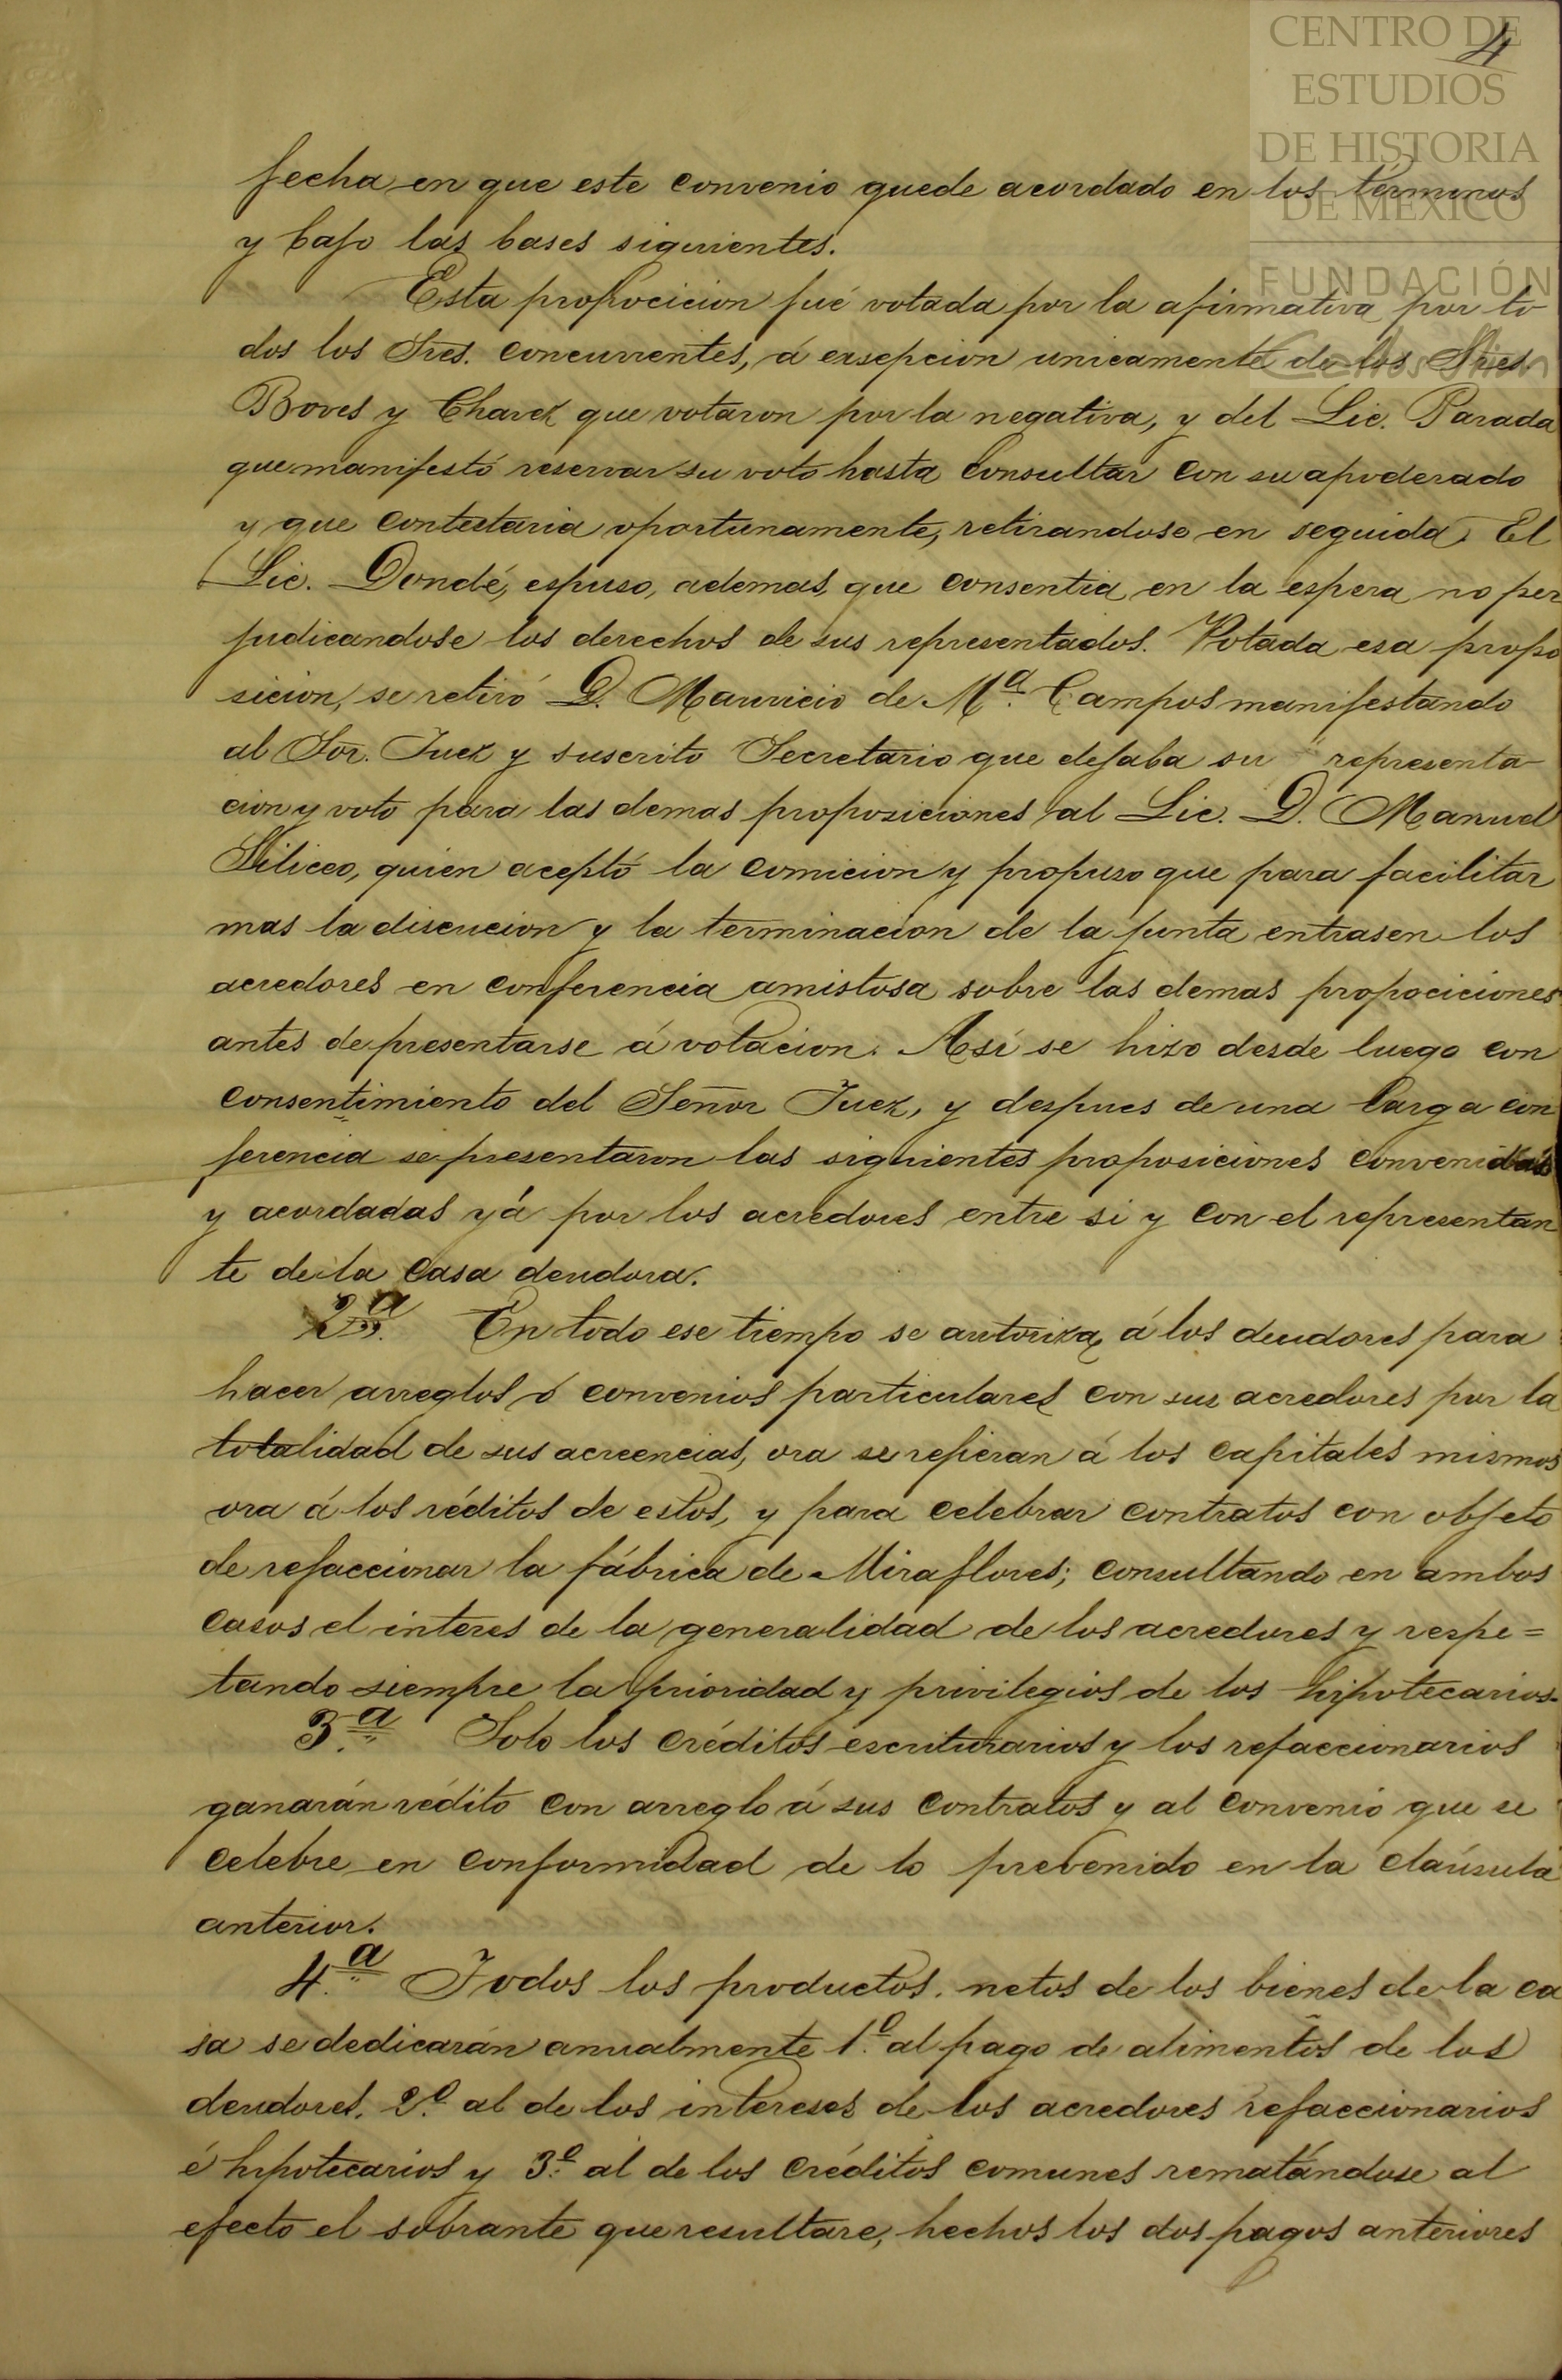 CENTRO DE
ESTUDIOS
DE HISTORIA
DE MÉXICO
FUNDACIÓN
Carlos Slim
4
fecha en que este convenio quede acordado en los términos
y bajo las bases siguientes.
Esta propocicion fué votada por la afirmativa por to
dos los Sres. concurrentes, á exsepcion unicamente de los Sres.
Boves y Chavez que votaron por la negativa, y del Lic. Parada
que manifestó reservar su voto hasta consultar con su apoderado
y que contestaria oportunamente, retirandose en seguida. El
Lic. Dondé, espuso, ademas, que consentia en la espera no per
judicandose los derechos de sus representados. Votada esa propo
sicion, se retiró D. Mauricio de Ma. Campos manifestando
al Sor. Juez y suscrito Secretario que dejaba su representa
cion y voto para las demas proposiciones al Lic. D. Manuel
Siliceo, quien aceptó la comicion y propuso que para facilitar
mas la discucion y la terminacion de la junta entrasen los
acredores en conferencia amistosa sobre las demas propociciones
antes de presentarse á votacion. Asi se hizo desde luego con
consentimiento del Señor Juez, y despues de una larga con
ferencia se presentaron las siguientes proposiciones convenidas
y acordadas yá por los acredores entre si y con el representan
te de la casa deudora.
2a. En todo ese tiempo se autoriza á los deudores para
hacer arreglos ó convenios particulares con sus acredores por la
totalidad de sus acreencias, ora se refieran á los capitales mismos
ora á los réditos de estos, y para celebrar contratos con objeto
de refaccionar la fábrica de Miraflores; consultando en ambos
casos el interes de la generalidad de los acredores y respe=
tando siempre la prioridad y privilegios de los hipotecarios.
3a. Solo los créditos escriturarios y los refaccionarios
ganarán rédito con arreglo á sus contratos y al convenio que se
celebre en conformidad de lo prevenido en la claúsula
anterior.
4a. Todos los productos netos de los bienes de la ca
sa se dedicarán anualmente 1o. al pago de alimentos de los
deudores. 2o. al de los intereses de los acredores refaccionarios
é hipotecarios y 3o. al de los créditos comunes rematándose al
efecto el sobrante que resultare, hechos los dos pagos anteriores